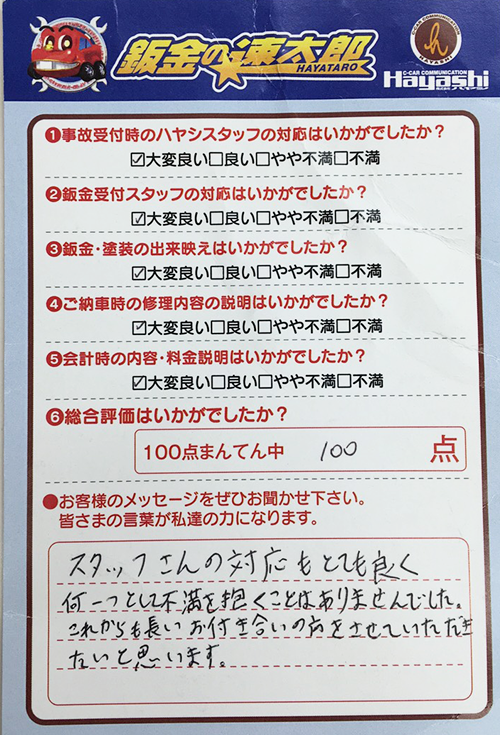 鈑金の速太郎
HAYATARO
C-CAR COMMUNICATION
h
HAYASHI
C-CAR COMMUNICATION
Hayashi
❶事故受付時のハヤシスタッフの対応はいかがでしたか？
☑大変良い□良い□やや不満□不満
❷鈑金受付スタッフの対応はいかがでしたか？
☑大変良い□良い□やや不満□不満
❸鈑金・塗装の出来映えはいかがでしたか？
☑大変良い□良い□やや不満□不満
❹ご納車時の修理内容の説明はいかがでしたか？
☑大変良い□良い□やや不満□不満
❺会計時の内容・料金説明はいかがでしたか？
☑大変良い□良い□やや不満□不満
❻総合評価はいかがでしたか？
100点まんてん中 100 点
●お客様のメッセージをぜひお聞かせ下さい。
皆さまの言葉が私達の力になります。
スタッフさんの対応もとても良く
何一つとして不満を抱くことはありませんでした。
これからも長いお付き合いの方をさせていただき
たいと思います。